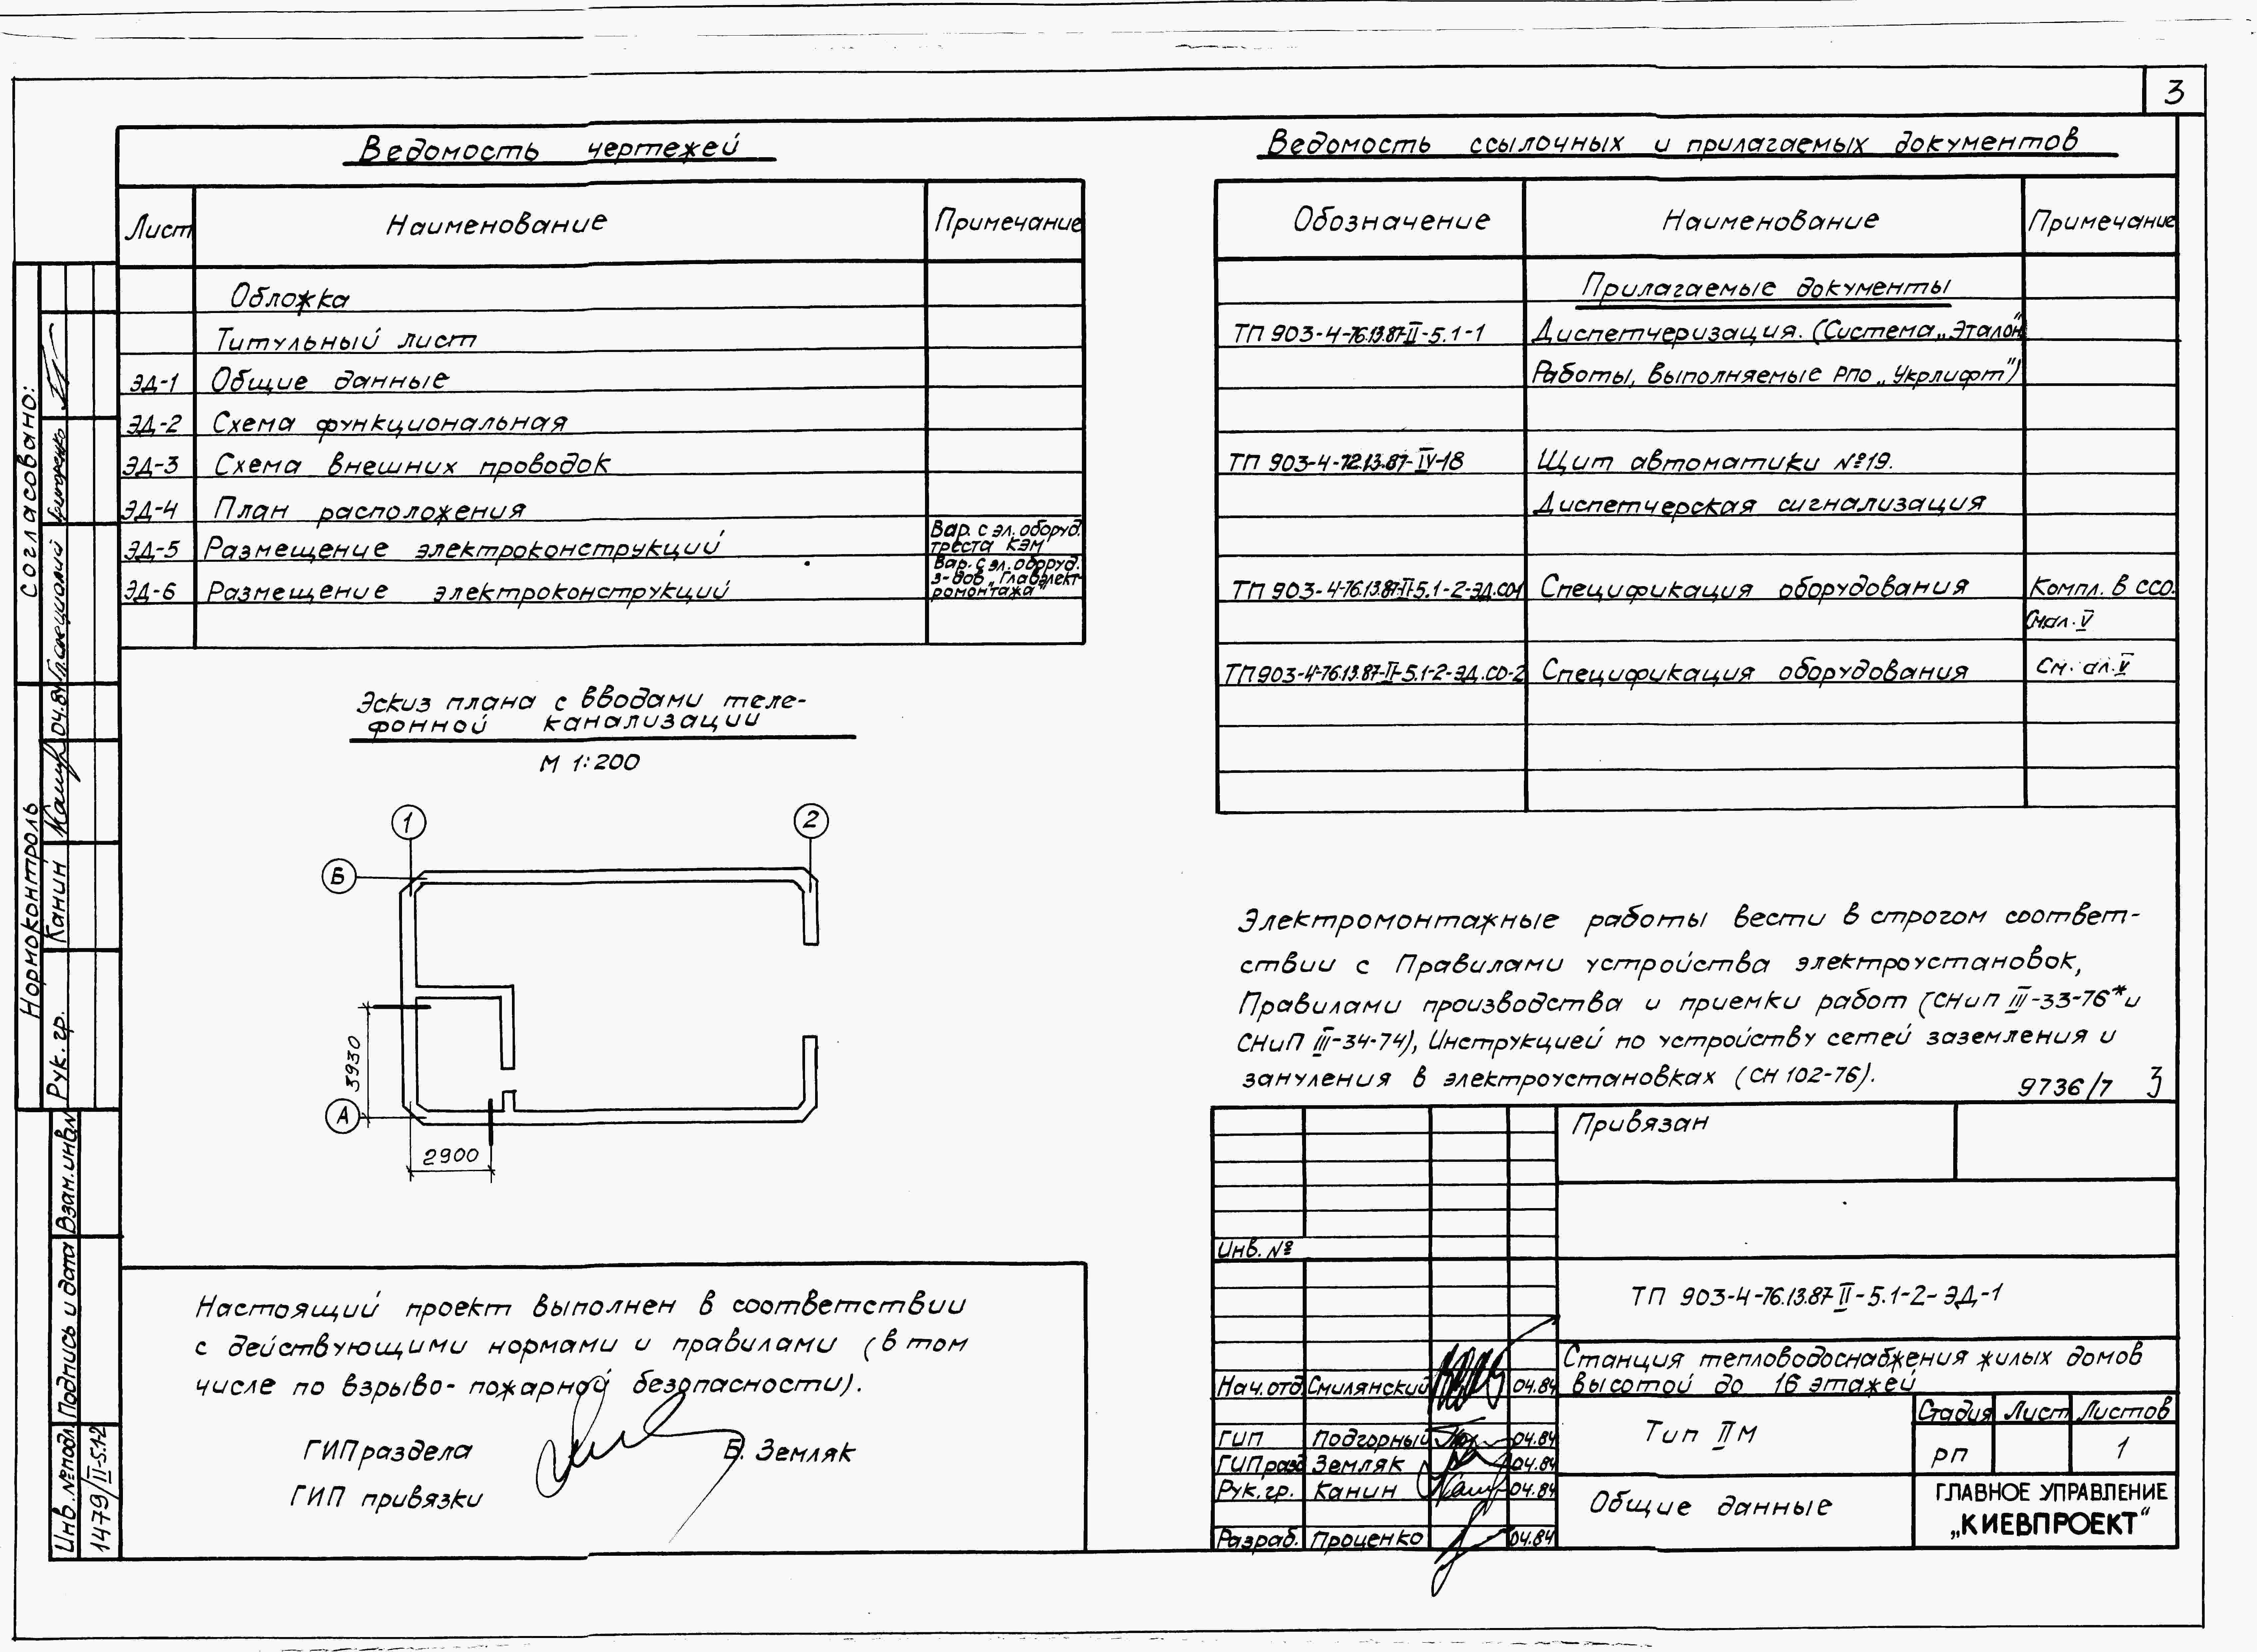 3
Ведомость чертежей
Лист Наименование Примечание
Обложка
Титульный лист
ЭД-1 Общие данные
ЭД-2 Схема функциональная
ЭД-3 Схема внешних проводок
ЭД-4 План расположения
ЭД-5 Размещение электроконструкций Вар. с эл. оборуд. треста КЭМ
ЭД-6 Размещение электроконструкций Вар. с эл. оборуд. з-дов „Главэлектромонтажа"
Ведомость ссылочных и прилагаемых документов
Обозначение Наименование Примечание
Прилагаемые документы
ТП 903-4-76.13.87-II-5.1-1 Диспетчеризация. (Система „Эталон"
Работы, выполняемые РПО „Укрлифт")
ТП 903-4-72.13.87-IV-18 Щит автоматики №19.
Диспетчерская сигнализация
ТП 903-4-76.13.87-II-5.1-2-ЭД.СО1 Спецификация оборудования Компл. в ССО.
См ал. V
ТП 903-4-76.13.87-II-5.1-2-ЭД.СО-2 Спецификация оборудования См. ал. V
Эскиз плана с вводами теле-
фонной канализации
М 1:200
1 2
Б
3930
А
2900
Электромонтажные работы вести в строгом соответ-
ствии с Правилами устройства электроустановок,
Правилами производства и приемки работ (СНиП III-33-76* и
СНиП III-34-74), Инструкцией по устройству сетей заземления и
зануления в электроустановках (СН 102-76).
9736/7 3
Настоящий проект выполнен в соответствии
с действующими нормами и правилами (в том
числе по взрыво-пожарной безопасности).
ГИП раздела Б. Земляк
ГИП привязки
Привязан
Инв. №
ТП 903-4-76.13.87-II-5.1-2-ЭД-1
Станция тепловодоснабжения жилых домов
высотой до 16 этажей
Нач.отд Смилянский 04.84
ГИП Подгорный 04.84
ГИП разд Земляк 04.84
Рук.гр. Канин 04.84
Разраб. Проценко 04.84
Тип II М
Стадия Лист Листов
РП 1
Общие данные
ГЛАВНОЕ УПРАВЛЕНИЕ
„КИЕВПРОЕКТ"
Согласовано:
Гл.специалист
Нормоконтроль
Рук. гр. Канин 04.84
Взам.инв.№
Подпись и дата
Инв. №подл.
1479/II-5.1-2